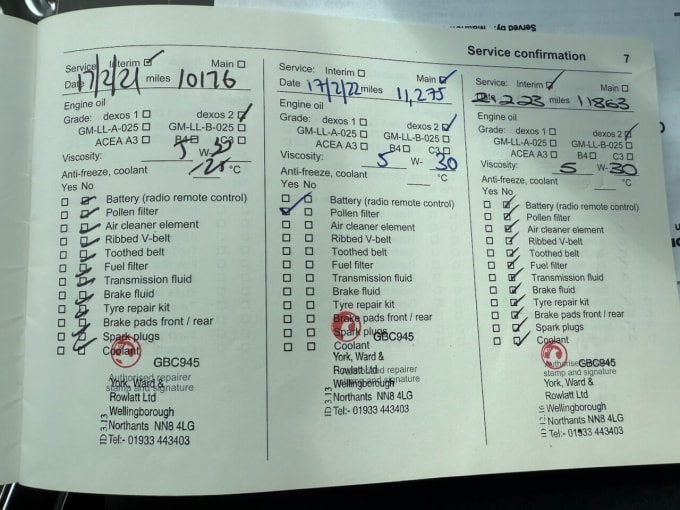 Served by:
Service confirmation 7
Service: Interim ☑ Main ☐
Date 17/2/21 miles 10176
Engine oil
Grade: dexos 1 ☐ dexos 2 ☑
GM-LL-A-025 ☐ GM-LL-B-025 ☐
ACEA A3 ☐ B4 ☐ C3 ☐
Viscosity: 5 W- 30
Anti-freeze, coolant -25 °C
Yes No
☐ ☑ Battery (radio remote control)
☐ ☑ Pollen filter
☐ ☑ Air cleaner element
☐ ☑ Ribbed V-belt
☐ ☑ Toothed belt
☐ ☑ Fuel filter
☐ ☑ Transmission fluid
☐ ☑ Brake fluid
☐ ☑ Tyre repair kit
☐ ☑ Brake pads front / rear
☐ ☑ Spark plugs
☐ ☑ Coolant
GBC945
Authorised repairer
stamp and signature
York, Ward &
Rowlatt Ltd
Wellingborough
Northants NN8 4LG
Tel:- 01933 443403
Service: Interim ☐ Main ☑
Date 17/2/22 miles 11,275
Engine oil
Grade: dexos 1 ☐ dexos 2 ☑
GM-LL-A-025 ☐ GM-LL-B-025 ☐
ACEA A3 ☐ B4 ☐ C3 ☐
Viscosity: 5 W- 30
Anti-freeze, coolant °C
Yes No
☐ ☐ Battery (radio remote control)
☑ ☐ Pollen filter
☐ ☐ Air cleaner element
☐ ☐ Ribbed V-belt
☐ ☐ Toothed belt
☐ ☐ Fuel filter
☐ ☐ Transmission fluid
☐ ☐ Brake fluid
☐ ☐ Tyre repair kit
☐ ☐ Brake pads front / rear
☐ ☐ Spark plugs
☐ ☐ Coolant
GBC945
York, Ward &
Rowlatt Ltd
Authorised repairer
stamp and signature
Wellingborough
Northants NN8 4LG
Tel:- 01933 443403
Service: Interim ☑ Main ☐
2.23 miles 11863
Engine oil
Grade: dexos 1 ☐ dexos 2 ☑
GM-LL-A-025 ☐ GM-LL-B-025 ☐
ACEA A3 ☐ B4 ☐ C3 ☐
Viscosity: 5 W- 30
Anti-freeze, coolant °C
Yes No
☐ ☑ Battery (radio remote control)
☐ ☑ Pollen filter
☐ ☑ Air cleaner element
☐ ☑ Ribbed V-belt
☐ ☑ Toothed belt
☐ ☑ Fuel filter
☐ ☑ Transmission fluid
☐ ☑ Brake fluid
☐ ☑ Tyre repair kit
☐ ☑ Brake pads front / rear
☐ ☑ Spark plugs
☐ ☑ Coolant
GBC945
Authorised repairer
stamp and signature
York, Ward &
Rowlatt Ltd
Wellingborough
Northants NN8 4LG
Tel:- 01933 443403